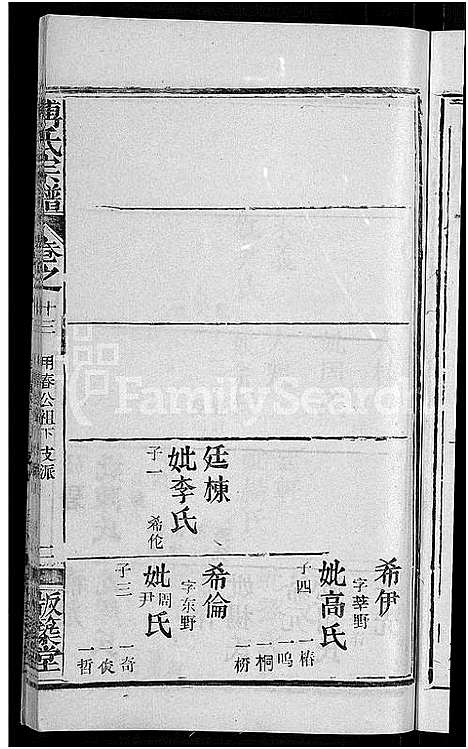 傅氏宗譜
卷之十三
用春公祖下支派
二
版築堂
希伊
字莘野
妣高氏
子四
一椿
一鸣
一桐
一树
廷棟
妣李氏
子一
希伦
希倫
字东野
妣周尹氏
子三
一奇
一俊
一哲
FamilySearch